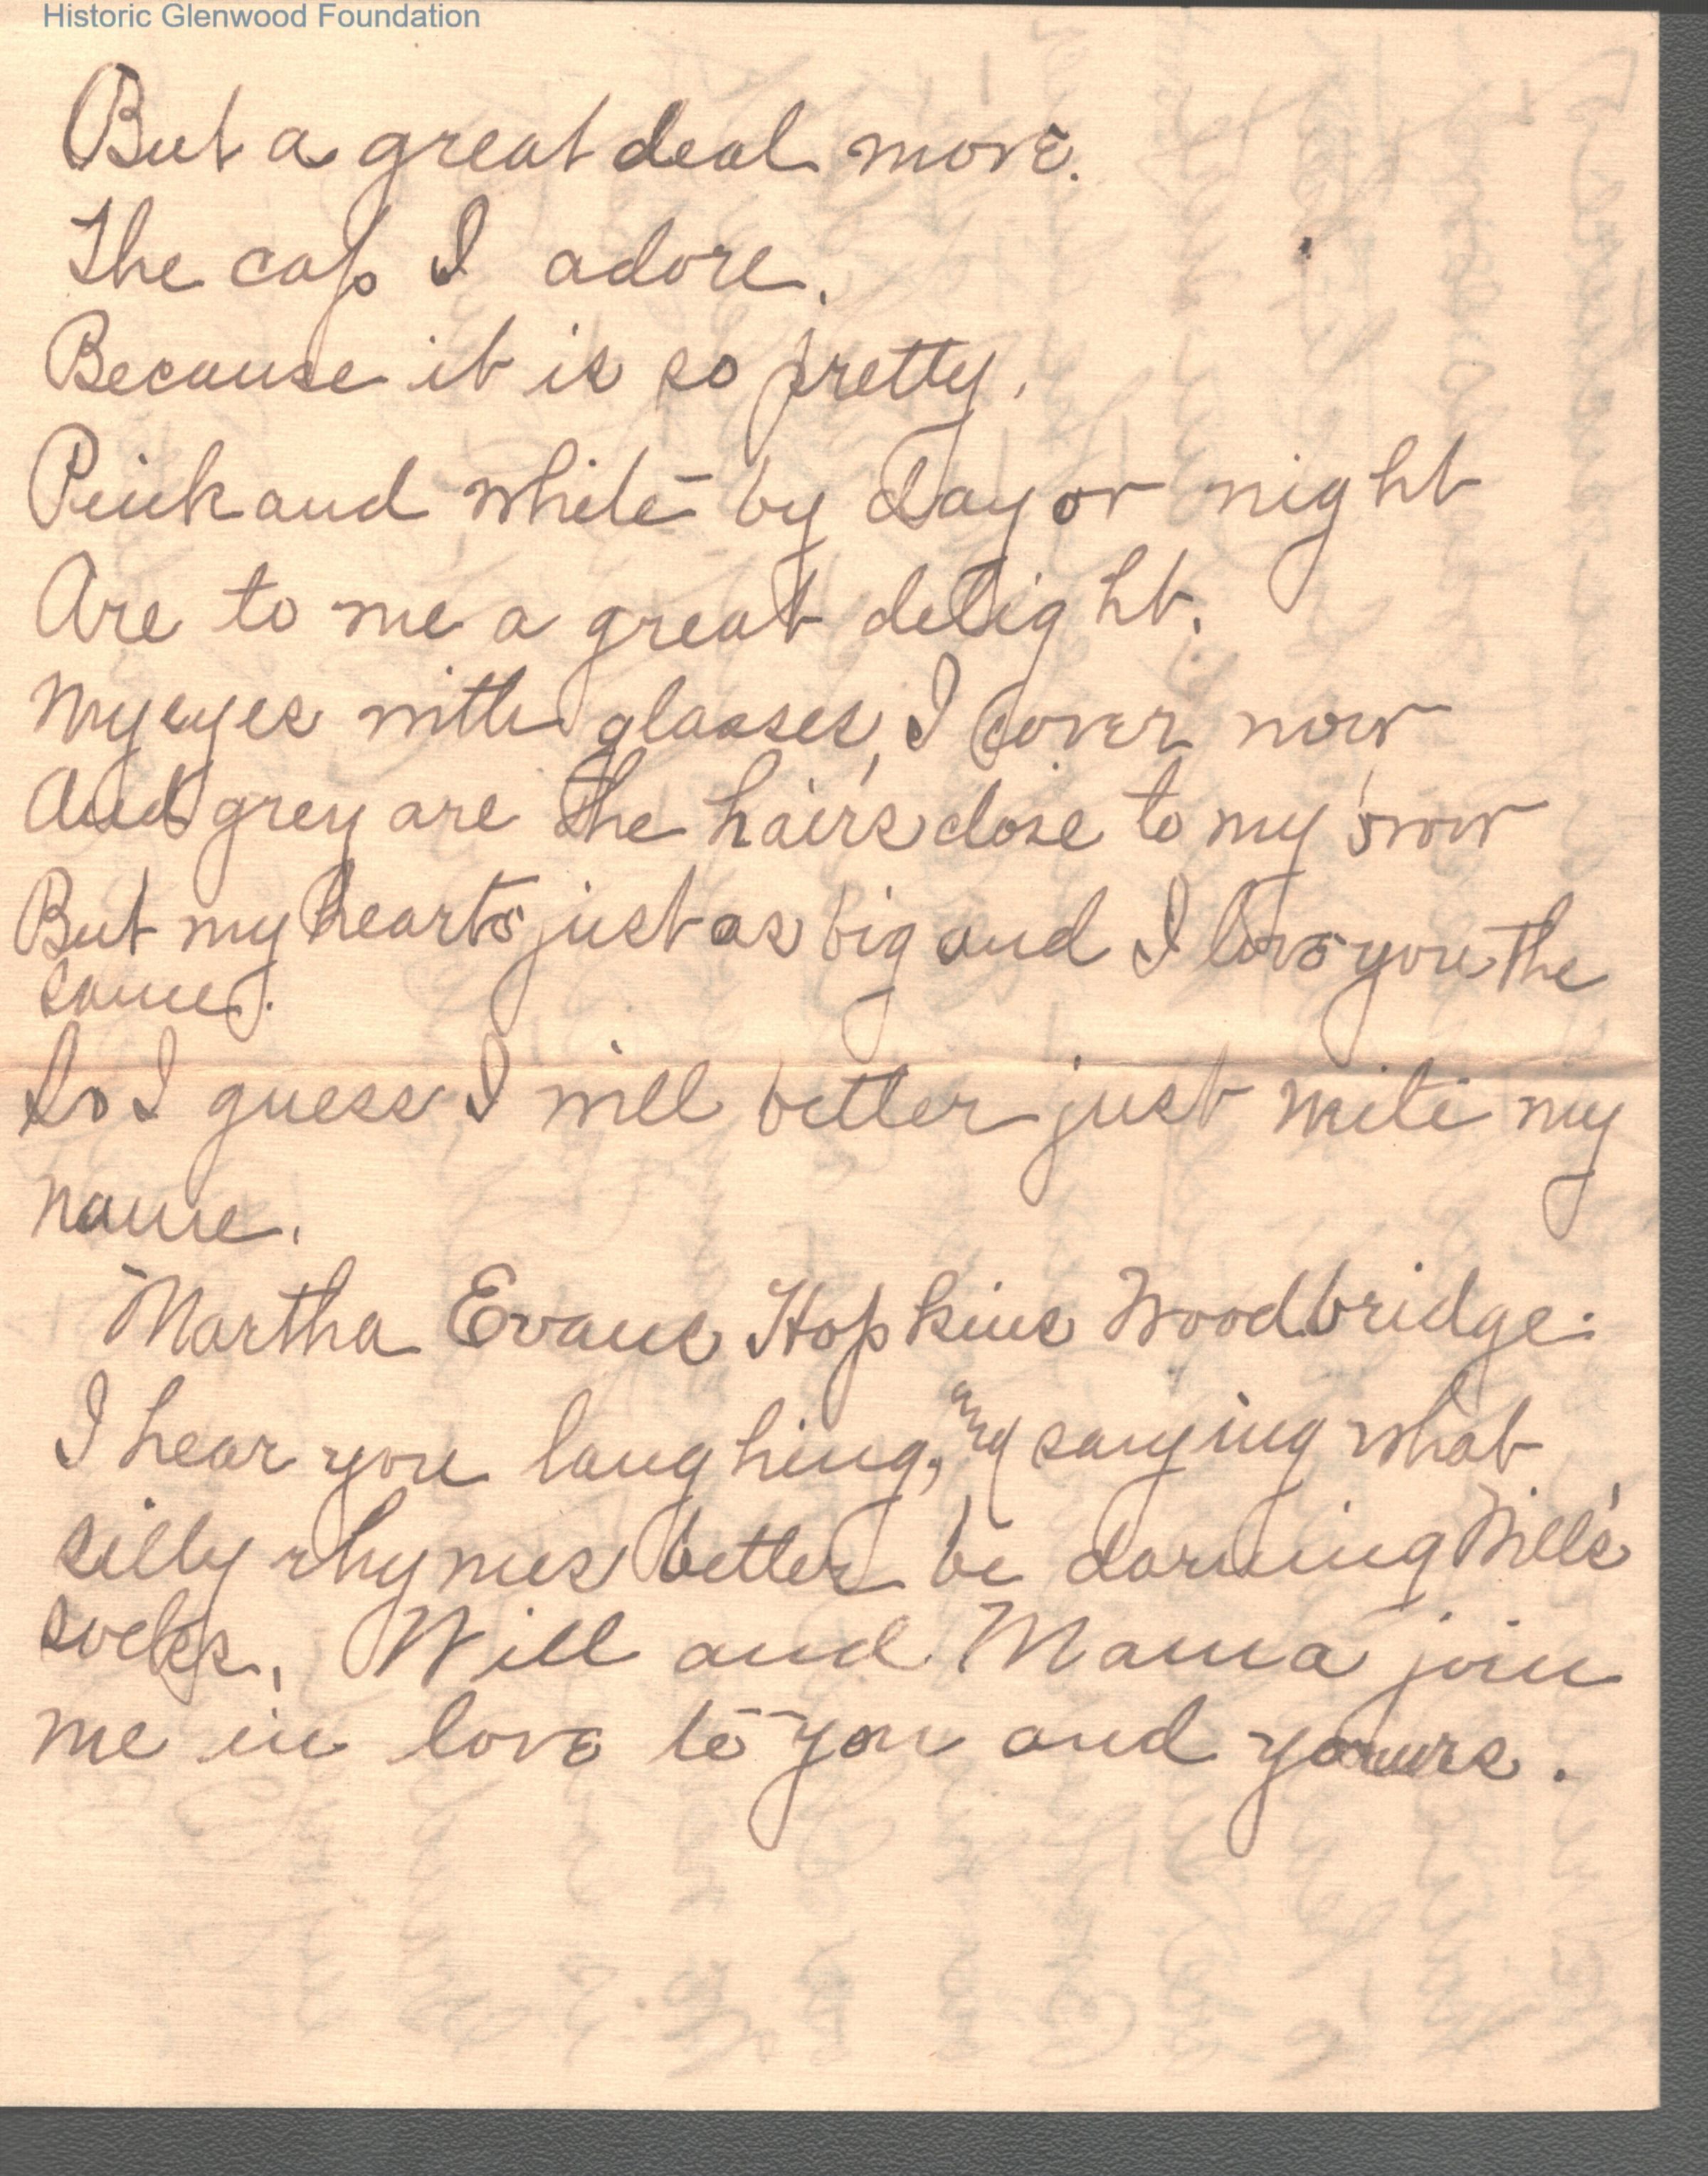 Historic Glenwood Foundation
But a great deal more.
The cap I adore.
Because it is so pretty.
Pink and white by day or night
Are to me a great delight.
My eyes with glasses, I cover now
And grey are the hairs close to my brow
But my hearts just as big and I love you the
same.
So I guess I will better just write my
name.
Martha Evans Hopkins Woodbridge.
I hear you laughing, and saying what
silly rhymes better be darning Will's
socks. Will and Mama join
me in love to you and yours.